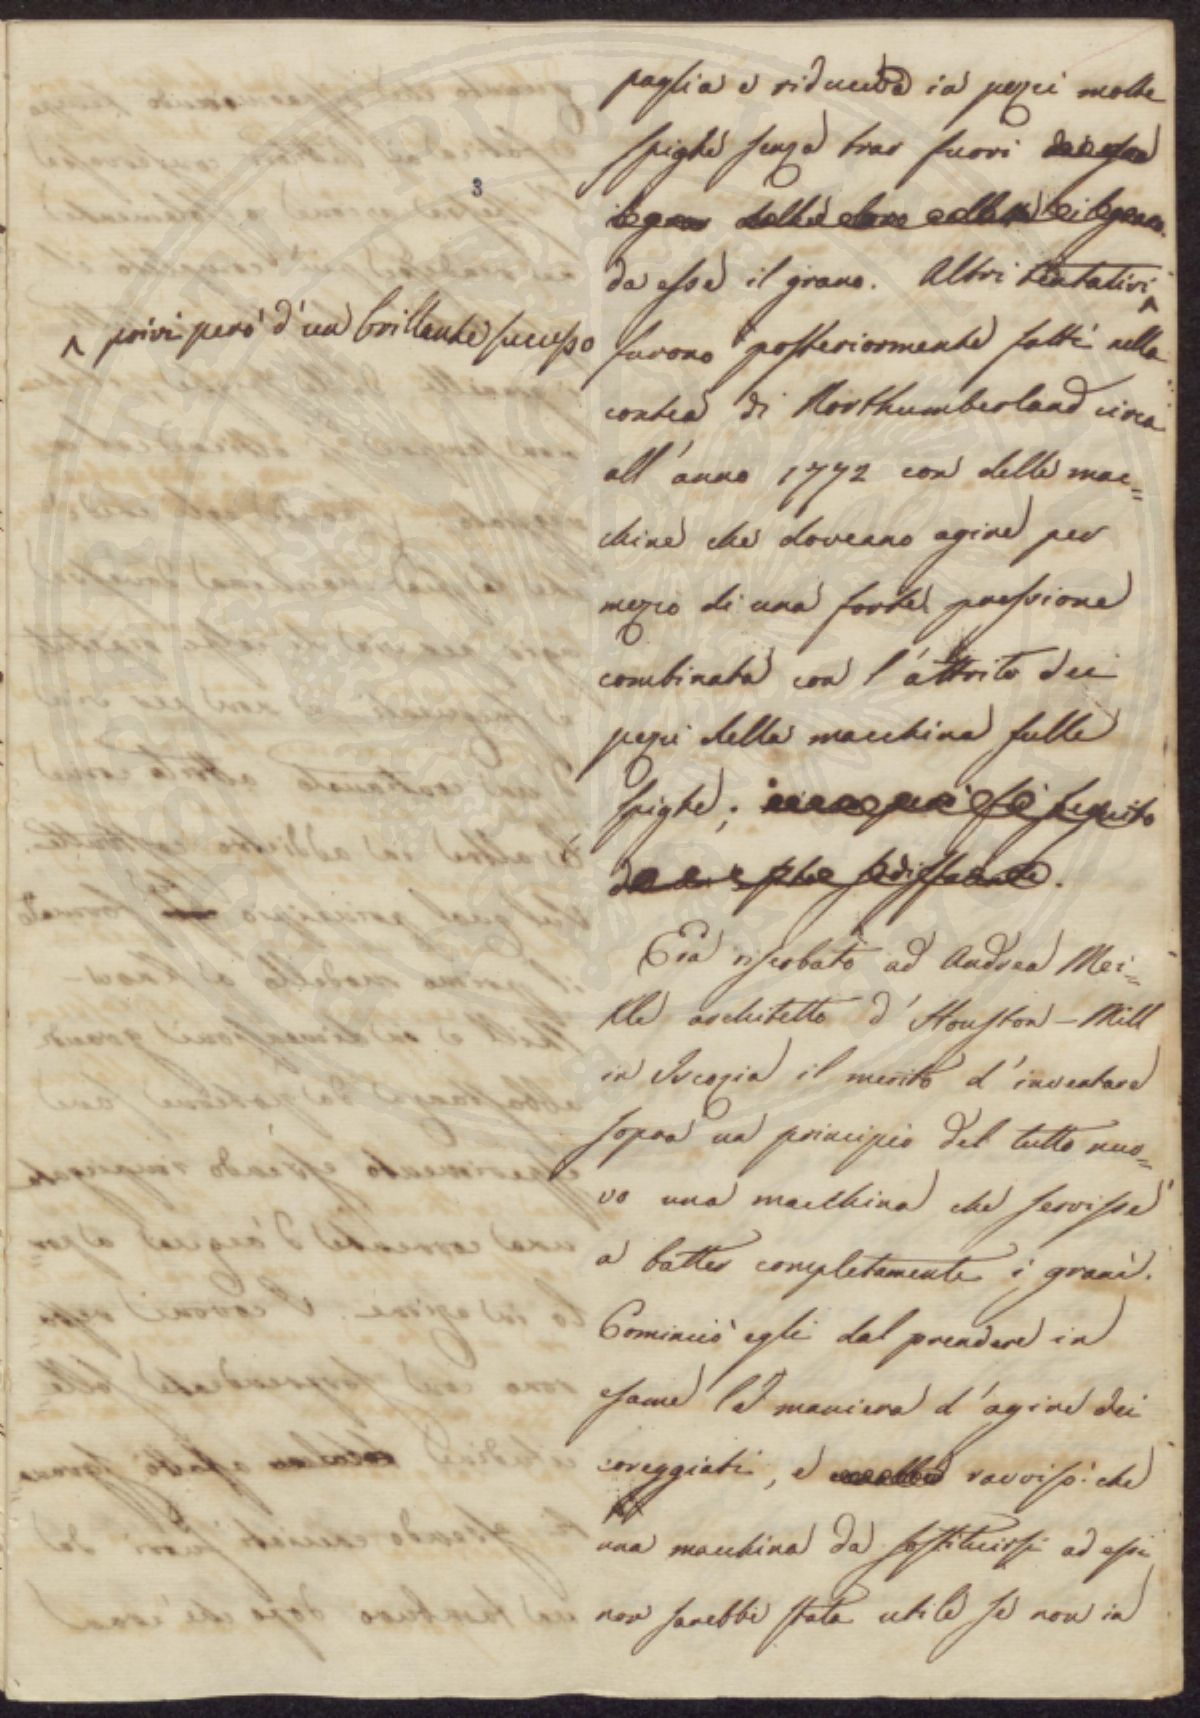 3
paglia e riduceva in pezzi molte
spighe senza trar fuori
da esse il grano. Altri tentativi ^
^ privi però d'un brillante successo
furono posteriormente fatti nella
contea di Northumberland circa
all'anno 1772 con delle mac=
chine che doveano agire per
mezzo di una forte pressione
combinata con l'attrito dei
pezzi della macchina sulle
spighe;
Era riserbato ad Andrea Mei=
kle architetto d'Houston-Mill
in Iscozia il merito d'inventare
sopra un principio del tutto nuo=
vo una macchina che servisse
a batter completamente i grani.
Cominciò egli dal prendere in
esame la maniera d'agire dei
coreggiati, e ravvisò che
una macchina da sostituirsi ad essi
non sarebbe stata utile se non in